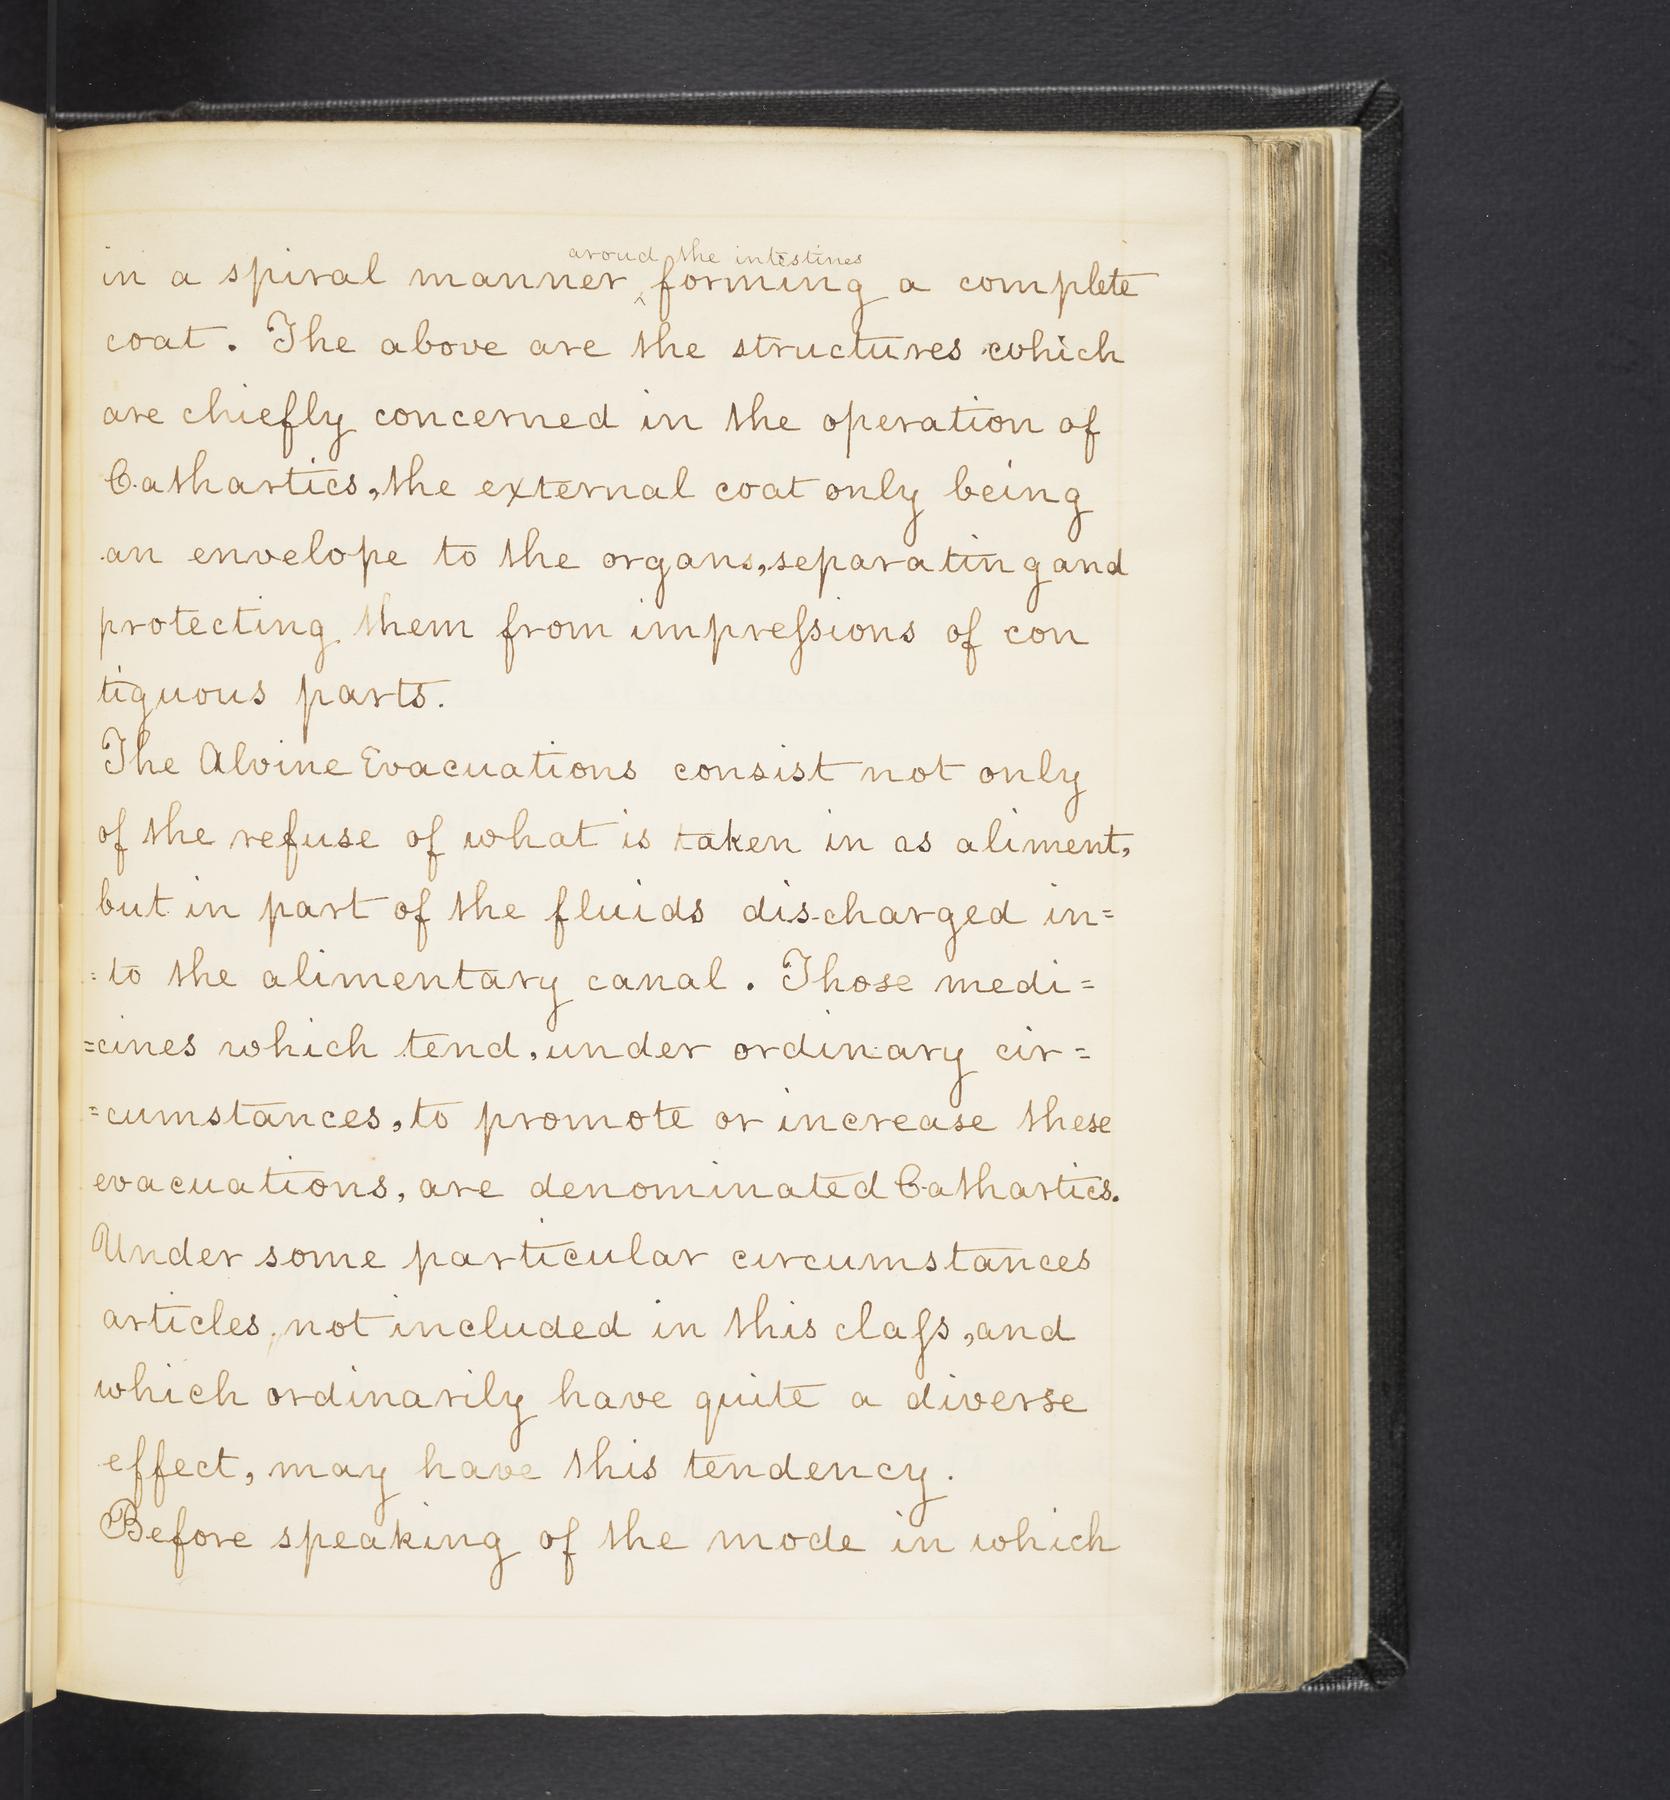 aroud the intestines
in a spiral manner ‸ forming a complete
coat. The above are the structures which
are chiefly concerned in the operation of
Cathartics, the external coat only being
an envelope to the organs, separating and
protecting them from impreſsions of con
tiguous parts.
The Alvine Evacuations consist not only
of the refuse of what is taken in as aliment,
but in part of the fluids discharged in=
=to the alimentary canal. Those medi=
=cines which tend, under ordinary cir=
=cumstances, to promote or increase these
evacuations, are denominated Cathartics.
Under some particular circumstances
articles, not included in this claſs, and
which ordinarily have quite a diverse
effect, may have this tendency.
Before speaking of the mode in which